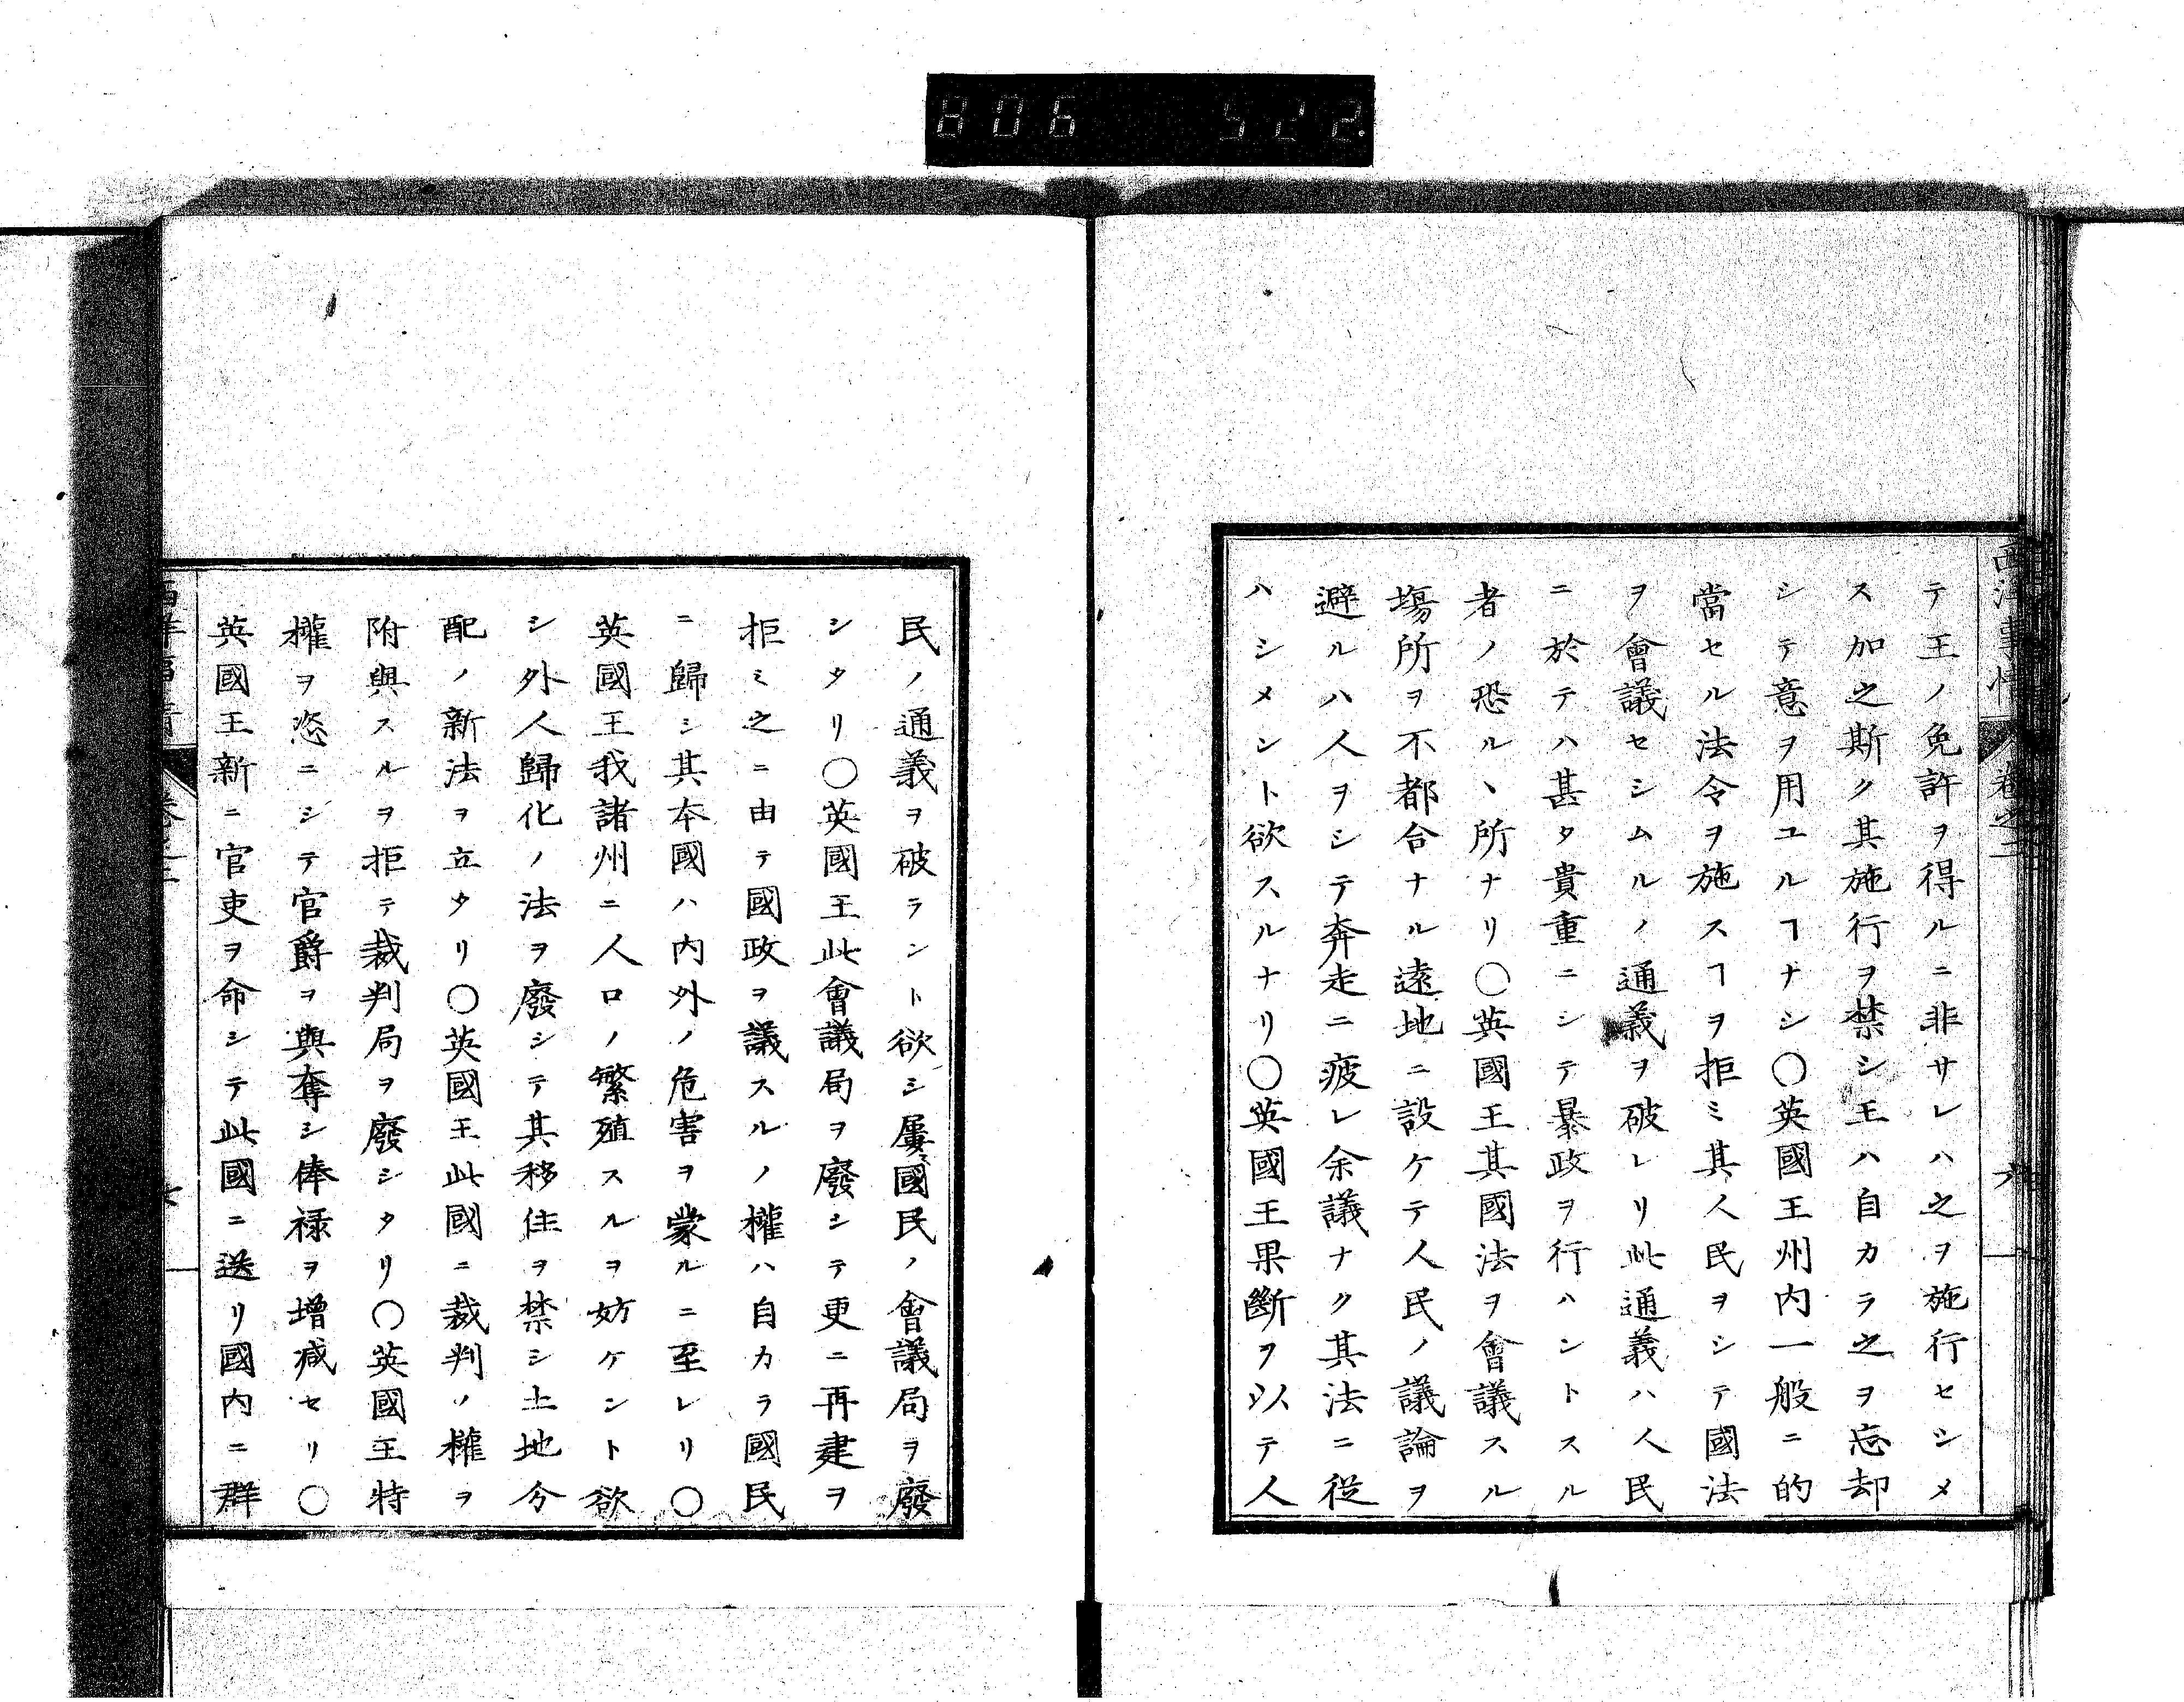 806 522.
西洋事情 卷之二 六
テ王ノ免許ヲ得ルニ非サレハ之ヲ施行セシメ
ス加之斯ク其施行ヲ禁シ王ハ自カラ之ヲ忘却
シテ意ヲ用ユルヿナシ〇英國王州内一般ニ的
當セル法令ヲ施スヿヲ拒ミ其人民ヲシテ國法
ヲ會議セシムルノ通義ヲ破レリ此通義ハ人民
ニ於テハ甚タ貴重ニシテ暴政ヲ行ハントスル
者ノ恐ルヽ所ナリ〇英國王其國法ヲ會議スル
塲所ヲ不都合ナル遠地ニ設ケテ人民ノ議論ヲ
避ルハ人ヲシテ奔走ニ疲レ余議ナク其法ニ從
ハシメント欲スルナリ〇英國王果斷ヲ以テ人
民ノ通義ヲ破ラント欲シ屢國民ノ會議局ヲ廢
シタリ〇英國王此會議局ヲ廢シテ更ニ再建ヲ
拒ミ之ニ由テ國政ヲ議スルノ權ハ自カラ國民
ニ歸シ其本國ハ内外ノ危害ヲ蒙ルニ至レリ〇
英國王我諸州ニ人口ノ繁殖スルヲ妨ケント欲
シ外人歸化ノ法ヲ廢シテ其移住ヲ禁シ土地分
配ノ新法ヲ立タリ〇英國王此國ニ裁判ノ權ヲ
附與スルヲ拒テ裁判局ヲ廢シタリ〇英國王特
權ヲ恣ニシテ官爵ヲ與奪シ俸禄ヲ増减セリ〇
英國王新ニ官吏ヲ命シテ此國ニ送リ國内ニ群